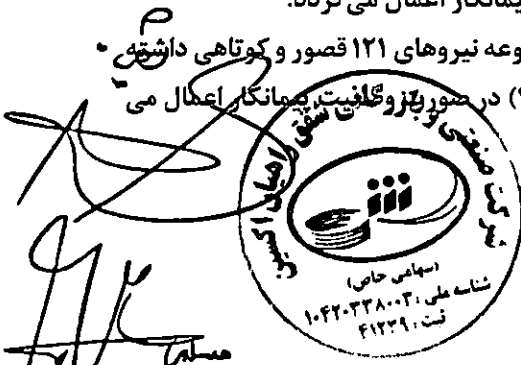 یمانکار اعمال می گردد.
وعه نیروهای ۱۲۱ قصور و کوتاهی داشته
) در صورت پیمانکار اعمال می
شرکت صنعتی و
راهیان اکسین
(سهامی خاص)
شناسه ملی : ۱۰۴۲۰۳۳۸۰۰۳
ثبت : ۴۱۲۳۹